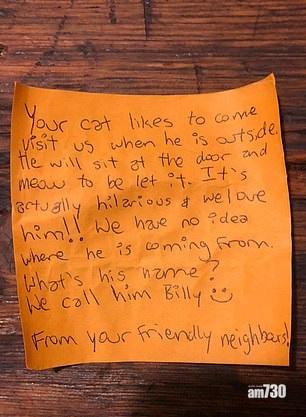 Your cat likes to come
visit us when he is outside.
He will sit at the door and
meow to be let it. It's
actually hilarious & we love
him!! We have no idea
where he is coming from.
What's his name?
We call him Billy
From your friendly neighbours!
am730